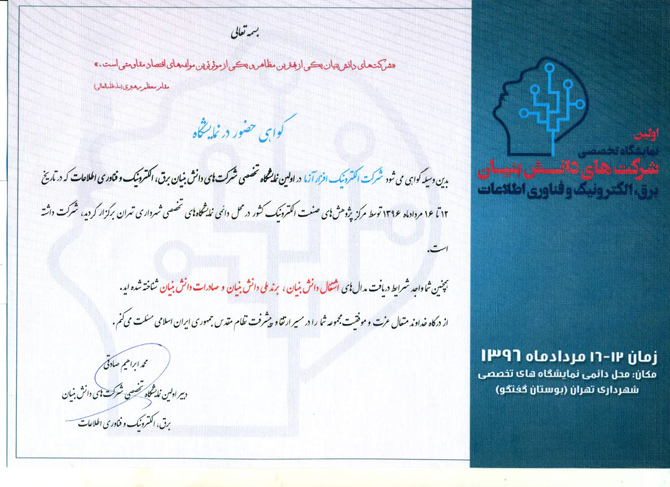 بسمه تعالی
«شرکت‌های دانش‌بنیان یکی از بهترین مظاهر و یکی از موثرترین مولفه‌های اقتصاد مقاومتی است.»
مقام معظم رهبری (مدظله‌العالی)
گواهی حضور در نمایشگاه
بدین وسیله گواهی می شود شرکت الکترونیک افزار آزما در اولین نمایشگاه تخصصی شرکت‌های دانش بنیان برق، الکترونیک و فناوری اطلاعات که در تاریخ
۱۲ تا ۱۶ مردادماه ۱۳۹۶ توسط مرکز پژوهش‌های صنعت الکترونیک کشور در محل دائمی نمایشگاه‌های تخصصی شهرداری تهران برگزار گردید، شرکت داشته
است.
همچنین شما واجد شرایط دریافت مدال‌های اشتغال دانش بنیان، برند ملی دانش بنیان و صادرات دانش بنیان شناخته شده اید.
از درگاه خداوند متعال عزت و موفقیت مجموعه شما را در مسیر ارتقا و پیشرفت نظام مقدس جمهوری ایران اسلامی مسئلت می‌کنم.
محمد ابراهیم صادقی
دبیر اولین نمایشگاه تخصصی شرکت‌های دانش بنیان
برق، الکترونیک و فناوری اطلاعات
اولین
نمایشگاه تخصصی
شرکت های دانش بنیان
برق، الکترونیک و فناوری اطلاعات
زمان ۱۲-۱۶ مردادماه ۱۳۹۶
مکان: محل دائمی نمایشگاه های تخصصی
شهرداری تهران (بوستان گفتگو)